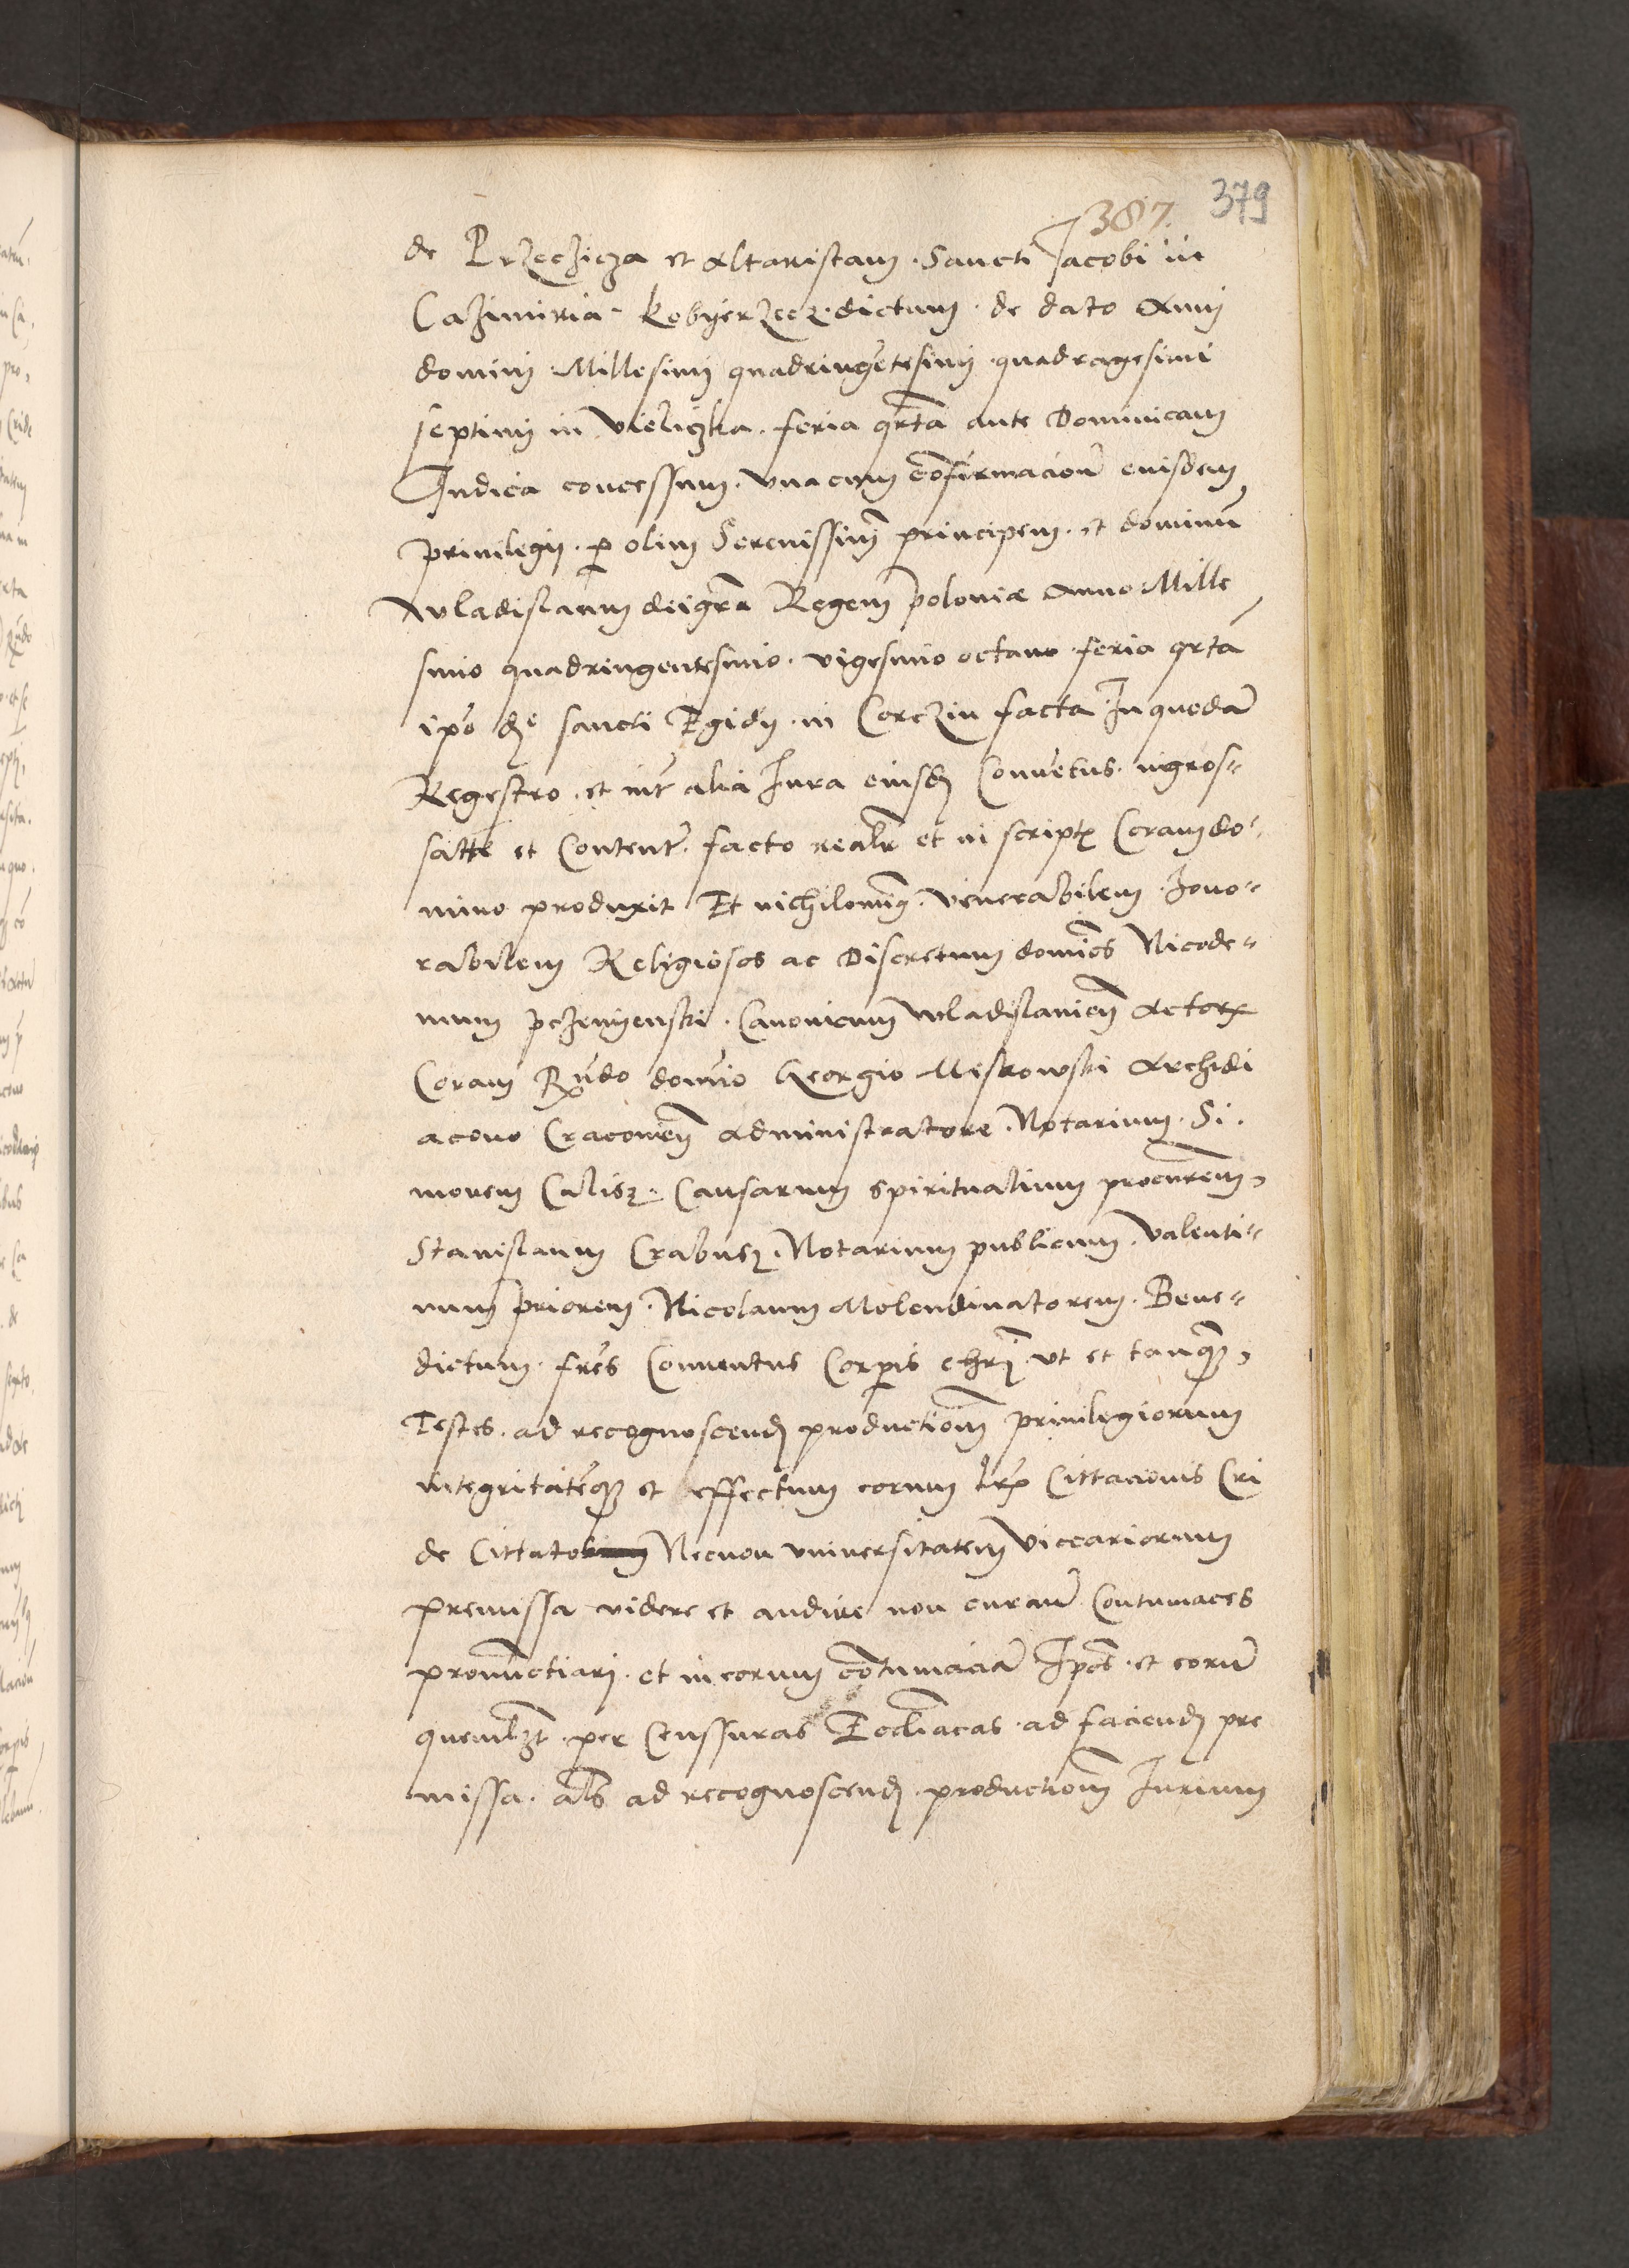 379
387.
de Przechicza et Altaristam. Sancti Jacobi in
Cazimiria. Kobyerzecz. dictum. de dato Anni
domini Millesimi quadringẽtesimi quadragesimi
septimi in Vieliczka. feria qrta ante Dominicam
Judica concessum. vnacum cõfirmacione eiusdem
priuilegij. p olim Serenissimũ principem. et dominũ
Wladislaum dei grã Regem poloniæ Anno Mille
simo quadringentesimo. vigesimo octauo feria qrta
ipõ die sancti Egidij. in Corczin facta In quodã
Regestro. et int alia Jura eiusdẽ Conuẽtus. ingros=
satte et Content. facto realr et in scriptis Coram do=
mino produxit Et nichilominus. Venerabilem. hono=
rabilem Religiosos ac Discretum dominos Nicode=
mum pczenyenski. Canonicum Wladislauieñ Actorum
Coram Rndo domino Georgio Miskowski Archidi
acono Cracouieñ Administratore. Notarium. Si.
monem Calisz. Causarum spiritualium procuratorem,
Stanislaum Crabusz. Notarium publicum. Valenti=
num priorem. Nicolaum Molendinatorem. Bene=
dictum. frẽs Conuentus Corpis chri. vt et tanqȝ,
Testes. ad recognoscendũ productionem priuilegiorum
integritatẽqȝ et effectum eorum lrã Cittacionis Cri
de Cittatos Necnon vniuersitatem Viccariorum
premissa videre et audire non curauit Contumaces
pronũctiari. et in eorum cõtumaciã Ipos. et eorũ
quemlibet. per Censsuras Eccliacas. ad faciendũ pre
missa. als ad recognoscendũ. productionem Jurium